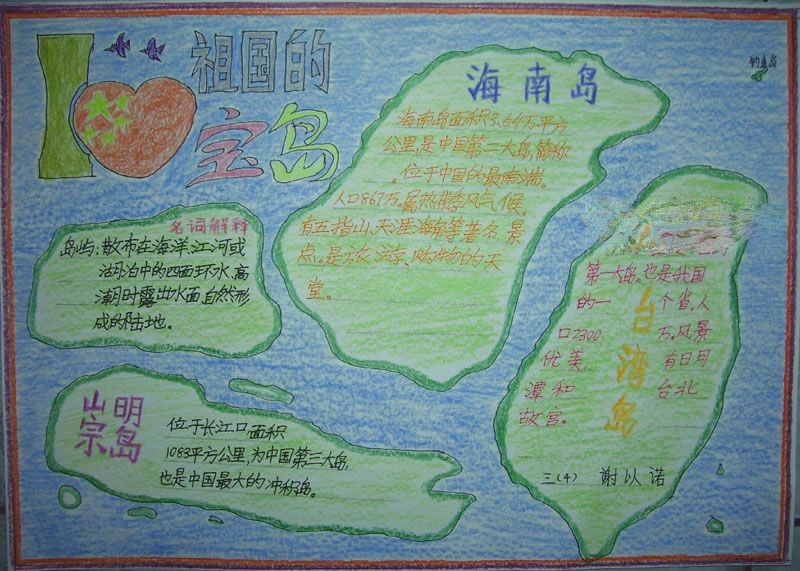 I
祖国的
宝岛
钓鱼岛
海南岛
海南岛面积3.54万平方
公里,是中国第二大岛,简称
位于中国的最南端。
人口867万。属热带季风气候。
有五指山、天涯海角等著名景
点。是旅游、购物的天
堂。
名词解释
岛屿:散布在海洋、江河或
湖泊中的四面环水、高
潮时露出水面、自然形
成的陆地。
第一大岛。也是我国
的一个省。人
口2300万。风景
优美,有日月
潭和台北
故宫。
台湾岛
崇明岛
位于长江口面积
1083平方公里,为中国第三大岛,
也是中国最大的冲积岛。
三(4) 谢以诺